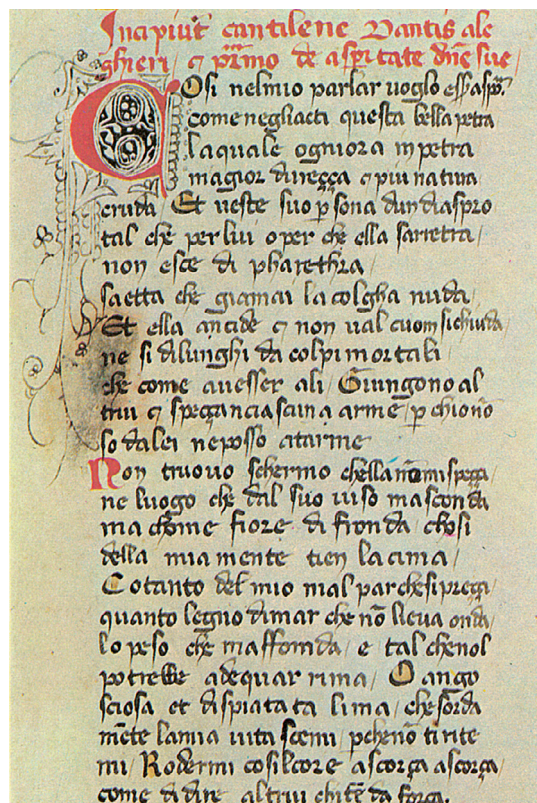 Incipiūt cantilene Dantis ale
ghieri, ⁊ prīmo de asp̄itate dn̄e sue
Cosi nelmio parlar uoglo ess̄ asp̄o.
come negliacti questa bella petra
laquale ogniora inpetra
magior dureçça ⁊ piu natiua
cruda, Et ueste suo p̄sona dundiaspro
tal che per lui o per che ella sarretra,
non esce di pharethra,
saetta che giamai la colgha nuda,
Et ella ancide ⁊ non ual cuom sichiuda,
ne si dilunghi da colpi mortali
che come auesser ali, Giungono al
trui ⁊ speçan ciascuna arme, p̄ chio nō
so dalei ne posso atarme
Non truouo schermo chella nō mi speçça
ne luogo che dal suo uiso masconda
ma chome fiore di fronda, chosi
della mia mente tien la cima,
Cotanto del mio mal par che si preçça,
quanto legno dimar che nō lieua onda,
lo peso che maffonda, e tal chenol
potrebbe adequar rima, O ango
sciosa et dispiatata lima, che sorda
mēte la mia uita scemi, p̄che nō ti rite
mi, Rodermi cosi lcore ascorça ascorça,
come di dire altrui chi tē da força,